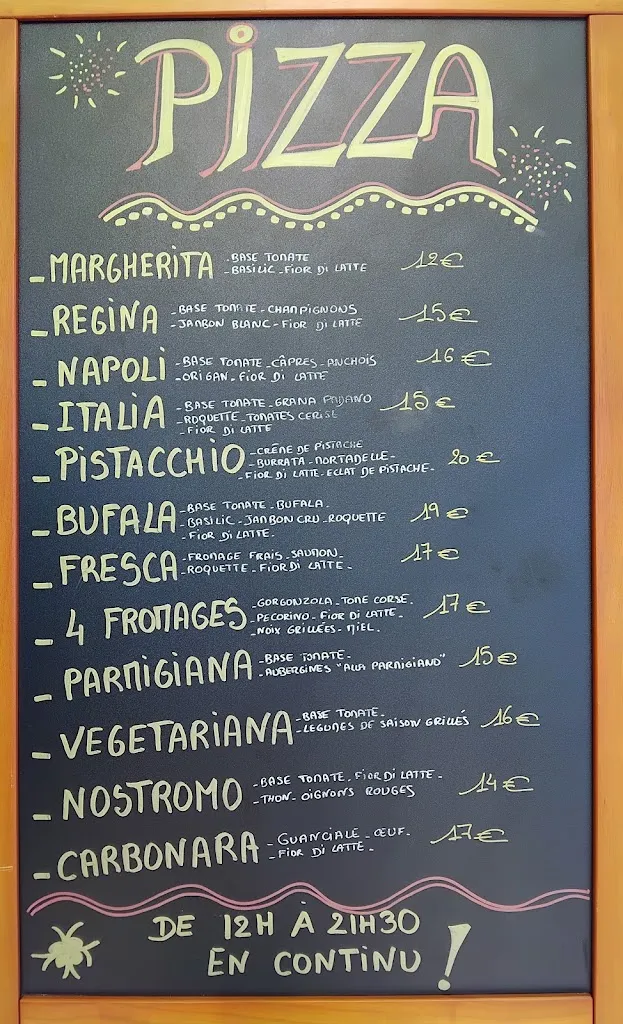 PIZZA
- MARGHERITA - BASE TOMATE 12€
- BASILIC - FIOR DI LATTE
- REGINA - BASE TOMATE - CHAMPIGNONS 15€
- JAMBON BLANC - FIOR DI LATTE
- NAPOLI - BASE TOMATE - CÂPRES - ANCHOIS 16€
- ORIGAN - FIOR DI LATTE
- ITALIA - BASE TOMATE - GRANA PADANO 15€
- ROQUETTE - TOMATES CERISE
- FIOR DI LATTE
- PISTACCHIO - CRÈME DE PISTACHE 20€
- BURRATA - MORTADELLE -
- FIOR DI LATTE - ECLAT DE PISTACHE -
- BUFALA - BASE TOMATE - BUFALA - 19€
- BASILIC - JAMBON CRU - ROQUETTE
- FIOR DI LATTE -
- FRESCA - FROMAGE FRAIS - SAUMON - 17€
- ROQUETTE - FIOR DI LATTE -
- 4 FROMAGES - GORGONZOLA - TOME CORSE - 17€
- PECORINO - FIOR DI LATTE -
- NOIX GRILLÉES - MIEL -
- PARMIGIANA - BASE TOMATE - 15€
- AUBERGINES "ALLA PARMIGIANO"
- VEGETARIANA - BASE TOMATE - 16€
- LEGUMES DE SAISON GRILLÉS
- NOSTROMO - BASE TOMATE - FIOR DI LATTE - 14€
- THON - OIGNONS ROUGES
- CARBONARA - GUANCIALE - ŒUF - 17€
- FIOR DI LATTE -
DE 12H À 21H30
EN CONTINU !